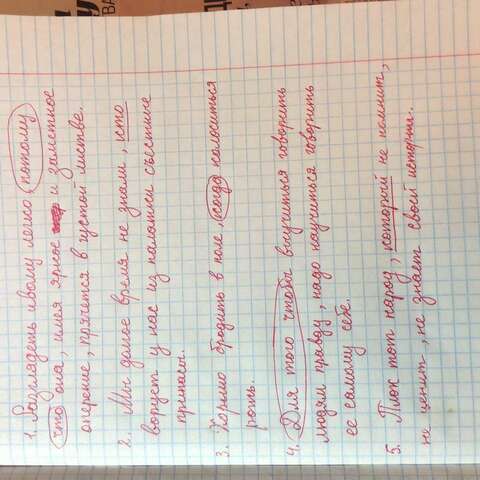 1. Разглядеть иволгу легко, потому
что она, имея яркое и заметное
оперение, прячется в густой листве.
2. Мы долгое время не знали, кто
ворует у нас из палатки съестные
припасы.
3. Хорошо бродить в поле, когда колоситься
рожь.
4. Для того чтобы выучиться говорить
людям правду, надо научиться говорить
ее самому себе.
5. Плох тот народ, который не помнит,
не ценит, не знает своей истории.